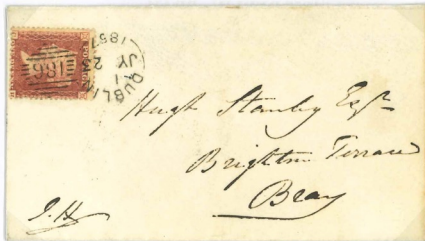 DUBLIN
1
JY 23
1857
186
Hugh Stanley Esqr
Brighton Terrace
Bray
J.H